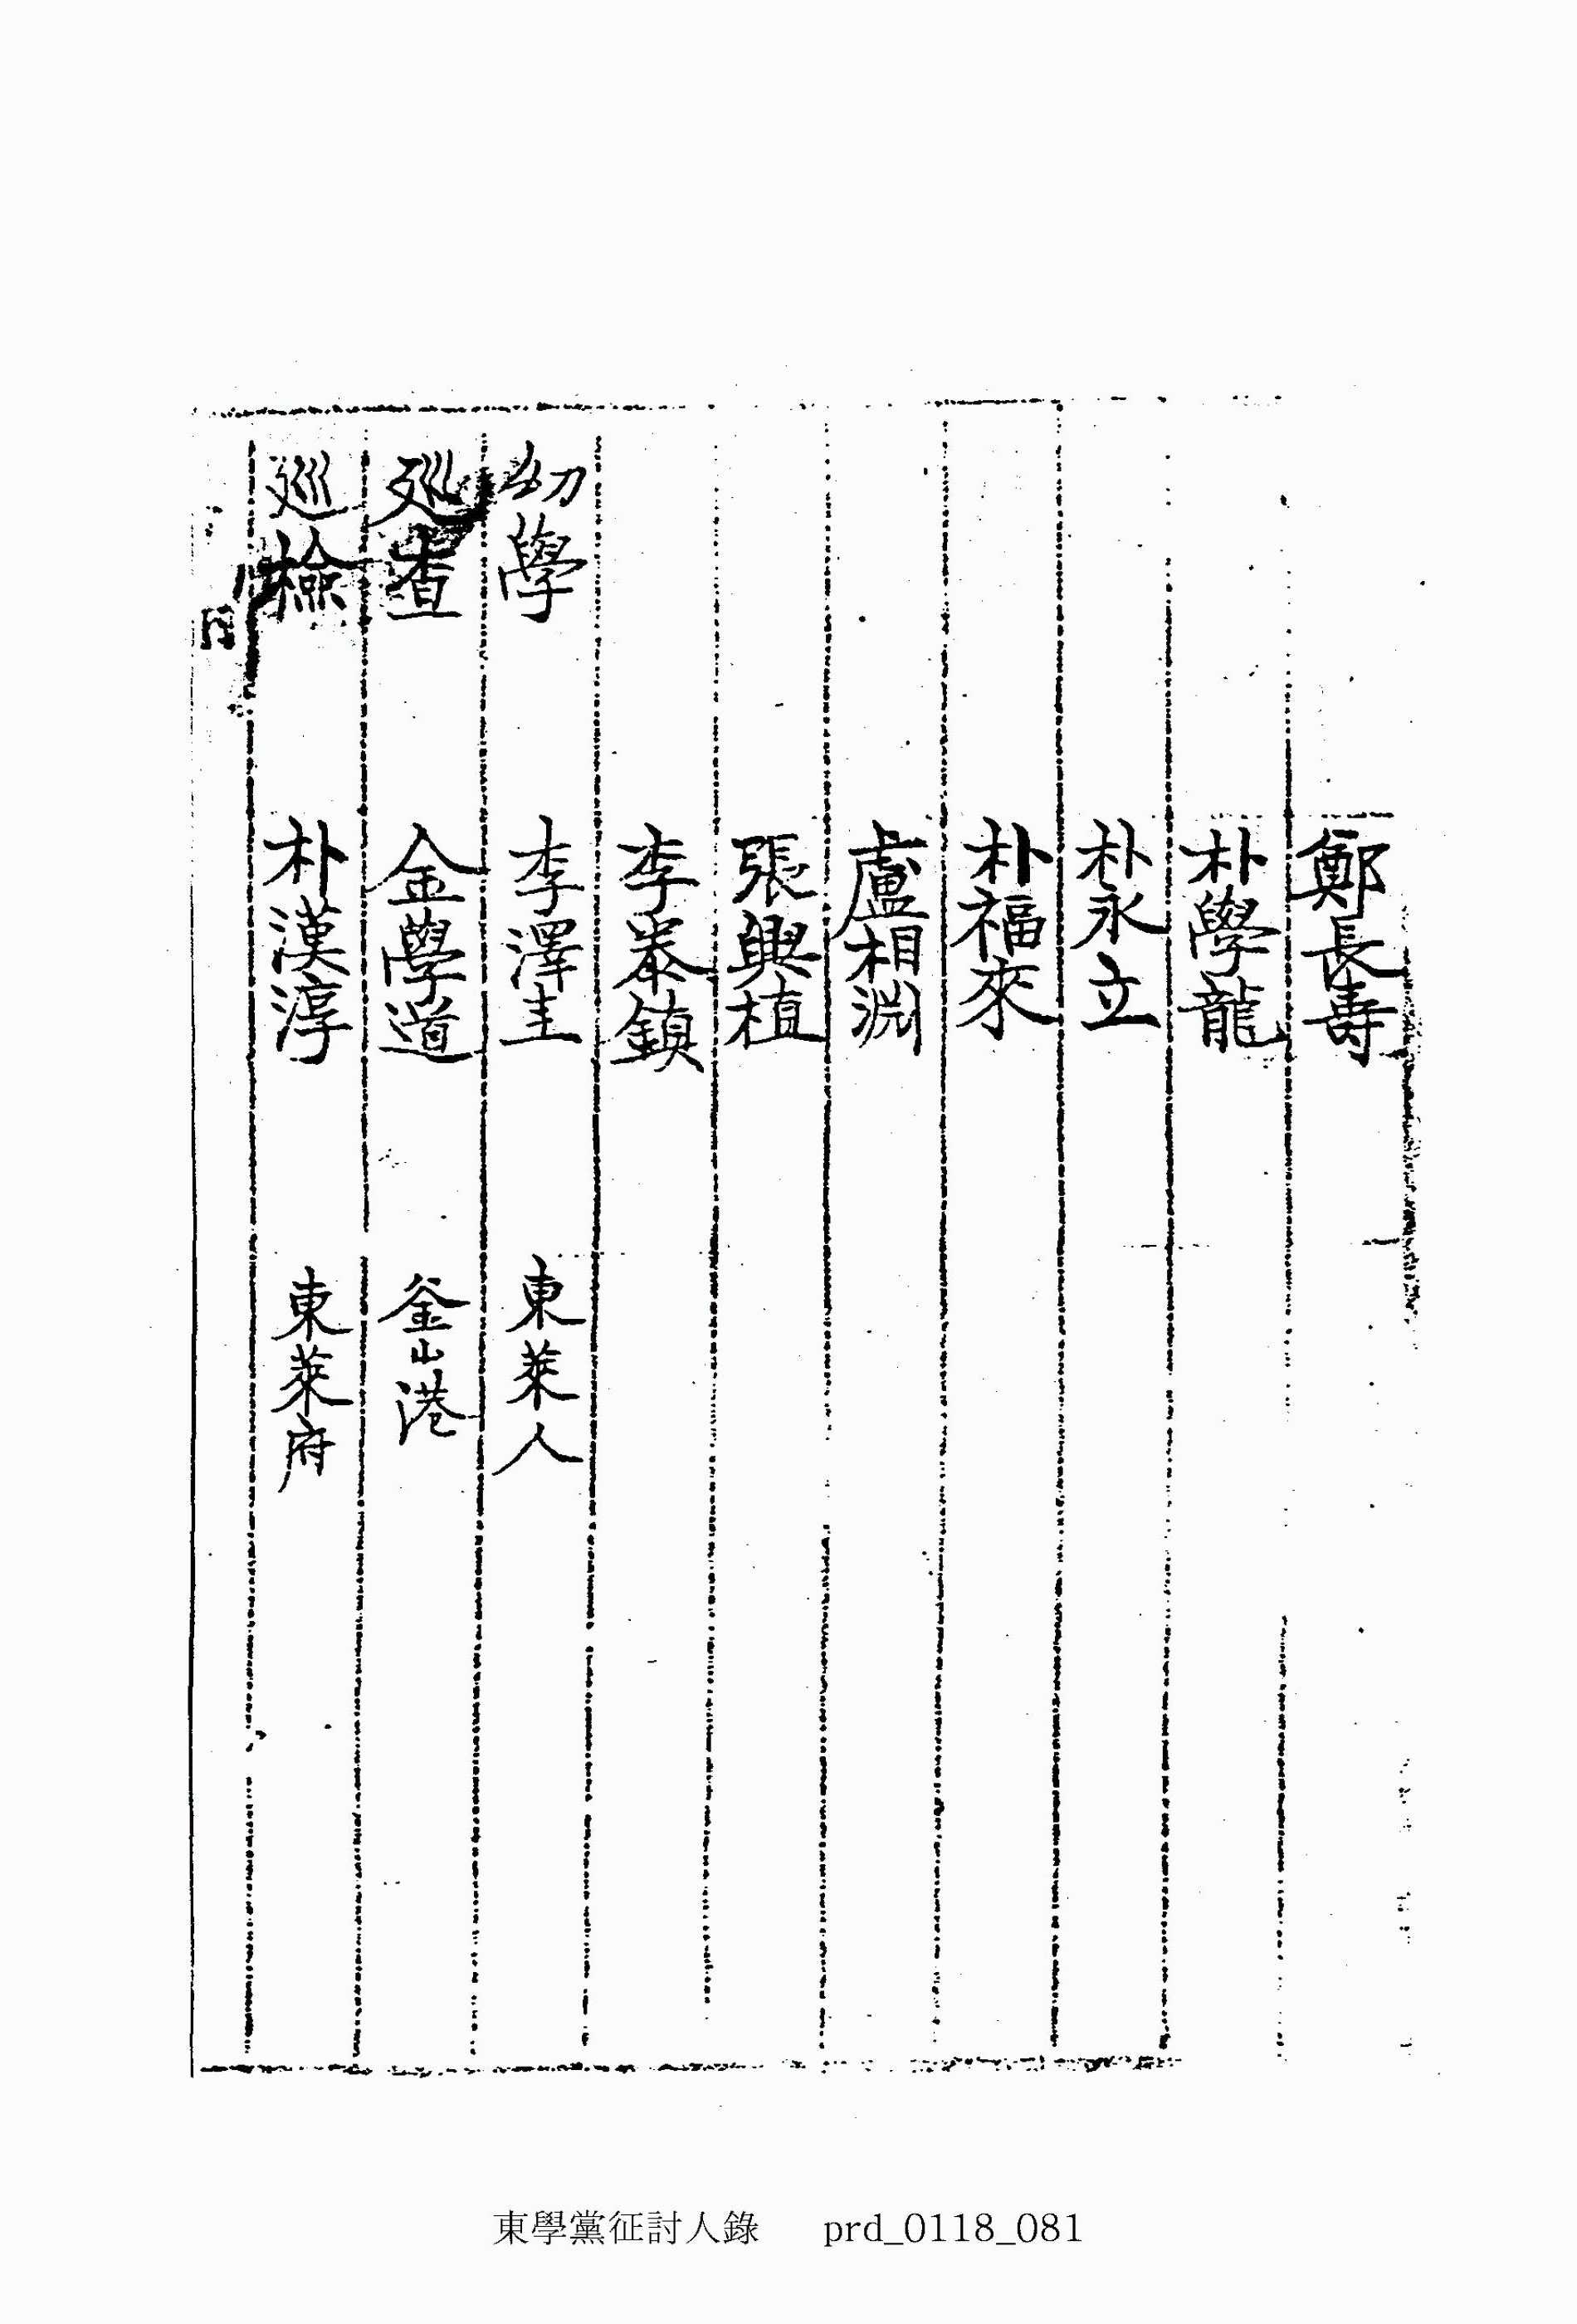 鄭長壽
朴學龍
朴永立
朴福來
盧相淵
張興植
李泰鎮
幼學 李澤圭 東萊人
巡查 金學道 釜山港
巡檢 朴漢淳 東萊府
東學黨征討人錄 prd_0118_081